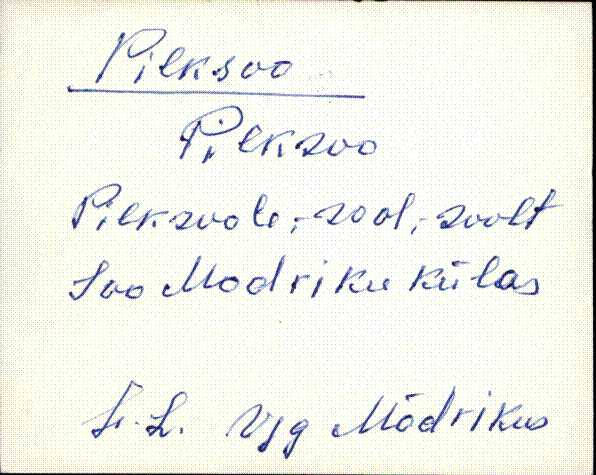 Pilksoo
Pilksoo
Pilksoole, -sool, -soolt
Soo Mõdriku külas
VJg Mõdriku